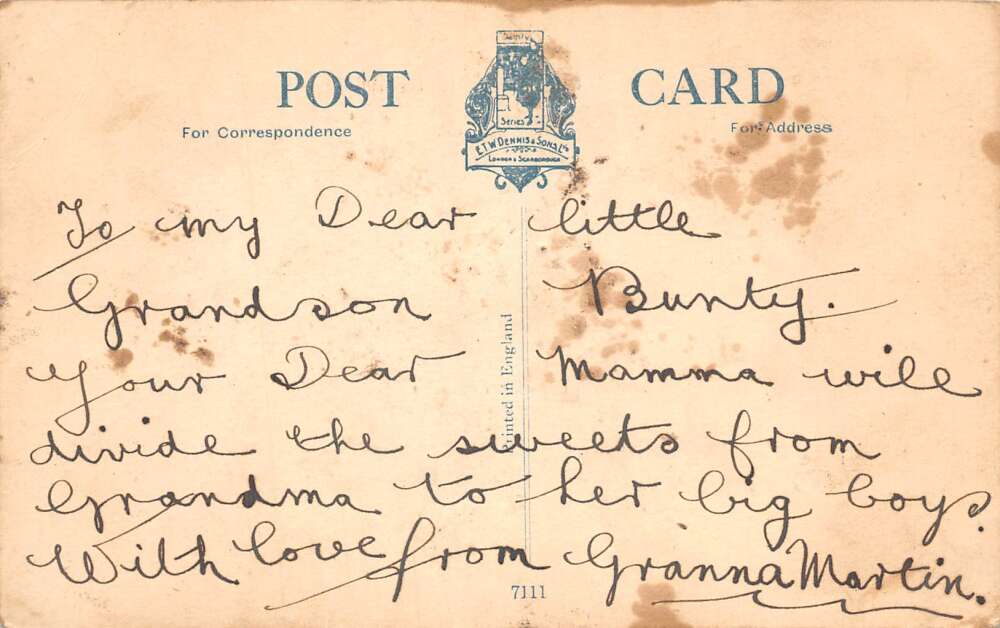 POST CARD
For Correspondence
For Address
Series
E.T.W. DENNIS & SONS LTD
LONDON & SCARBOROUGH
To my Dear little
Grandson Bunty.
Your Dear Mamma will
divide the sweets from
Grandma to her big boys.
With love from Granna Martin.
Printed in England
7111